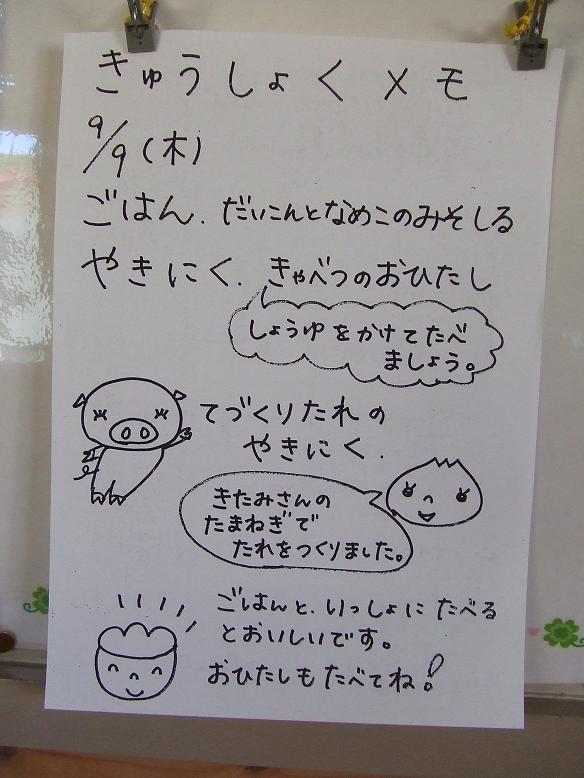 きゅうしょくメモ
9/9(木)
ごはん. だいこんとなめこのみそしる
やきにく. きゃべつのおひたし
しょうゆをかけてたべ
ましょう。
てづくりたれの
やきにく.
きたみさんの
たまねぎで
たれをつくりました。
ごはんと、いっしょにたべる
とおいしいです。
おひたしもたべてね!